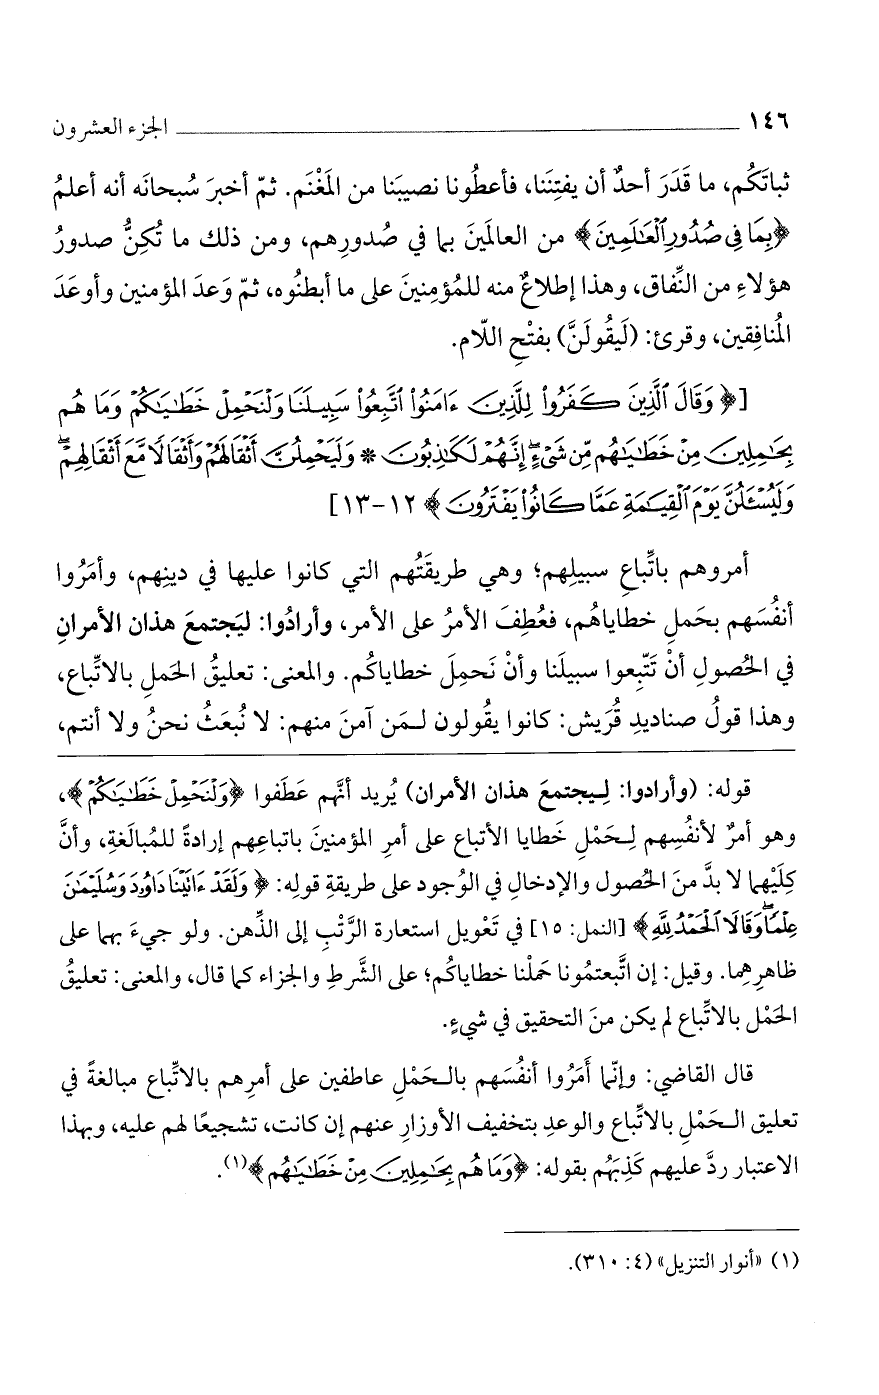 ١٤٦ الجزء العشرون
ثباتَكُم، ما قَدَرَ أحدٌ أن يفتِنَنا، فأعطُونا نصيبَنا من المَغْنَم. ثمّ أخبرَ سُبحانَه أنه أعلمُ
﴿بِمَا فِى صُدُورِ ٱلْعَـٰلَمِينَ﴾ من العالَمينَ بما في صُدورِهم، ومن ذلك ما تُكِنُّ صدورُ
هؤلاءِ من النِّفاق، وهذا إطلاعٌ منه للمُؤمِنينَ على ما أبطنُوه، ثمّ وَعدَ المؤمنين وأوعَدَ
المُنافِقين، وقرئ: (لَيقُولَنَّ) بفتْحِ اللّام.
[﴿ وَقَالَ ٱلَّذِينَ كَفَرُوا۟ لِلَّذِينَ ءَامَنُوا۟ ٱتَّبِعُوا۟ سَبِيلَنَا وَلْنَحْمِلْ خَطَـٰيَـٰكُمْ وَمَا هُم
بِحَـٰمِلِينَ مِنْ خَطَـٰيَـٰهُم مِّن شَىْءٍ ۖ إِنَّهُمْ لَكَـٰذِبُونَ * وَلَيَحْمِلُنَّ أَثْقَالَهُمْ وَأَثْقَالًا مَّعَ أَثْقَالِهِمْ ۖ
وَلَيُسْـَٔلُنَّ يَوْمَ ٱلْقِيَـٰمَةِ عَمَّا كَانُوا۟ يَفْتَرُونَ ﴾ ١٢-١٣]
أمروهم باتِّباعِ سبيلِهم؛ وهي طريقَتُهم التي كانوا عليها في دينِهم، وأمَرُوا
أنفُسَهم بحَملِ خطاياهُم، فعُطِفَ الأمرُ على الأمر، وأرادُوا: ليَجتمعَ هذان الأمرانِ
في الحُصولِ أنْ تَتّبِعوا سبيلَنا وأنْ نَحمِلَ خطاياكُم. والمعنى: تعليقُ الحَملِ بالاتِّباع،
وهذا قولُ صناديدِ قُرَيش: كانوا يقُولون لـمَن آمنَ منهم: لا نُبعَثُ نحنُ ولا أنتم،
قوله: (وأرادوا: لـيجتمعَ هذان الأمران) يُريد أنَّهم عَطَفوا ﴿وَلْنَحْمِلْ خَطَـٰيَـٰكُمْ﴾،
وهو أمرٌ لأنفُسِهم لِـحَمْلِ خَطايا الأتباع على أمرِ المؤمنينَ باتباعِهم إرادةً للمُبالَغةِ، وأنَّ
كِلَيْهما لا بدَّ منَ الحُصول والإدخالِ في الوُجود على طريقةِ قولِه: ﴿ وَلَقَدْ ءَاتَيْنَا دَاوُۥدَ وَسُلَيْمَـٰنَ
عِلْمًا ۖ وَقَالَا ٱلْحَمْدُ لِلَّهِ﴾ [النمل: ١٥] في تَعْويل استعارة الرَّتْبِ إلى الذِّهن. ولو جيءَ بهما على
ظاهرِهِما. وقيل: إن اتَّبعتمُونا حَملْنا خطاياكُم؛ على الشَّرطِ والجزاء كما قال، والمعنى: تعليقُ
الحَمْل بالاتِّباع لم يكن منَ التحقيق في شيءٍ.
قال القاضي: وإنّما أَمَرُوا أنفُسَهم بالـحَمْلِ عاطفين على أمرِهم بالاتِّباع مبالغةً في
تعليق الـحَمْلِ بالاتِّباع والوعدِ بتخفيف الأوزارِ عنهم إن كانت، تشجيعًا لهم عليه، وبهذا
الاعتبار ردَّ عليهم كَذِبَهُم بقوله: ﴿وَمَا هُم بِحَـٰمِلِينَ مِنْ خَطَـٰيَـٰهُم﴾(١).
(١) «أنوار التنزيل» (٤: ٣١٠).